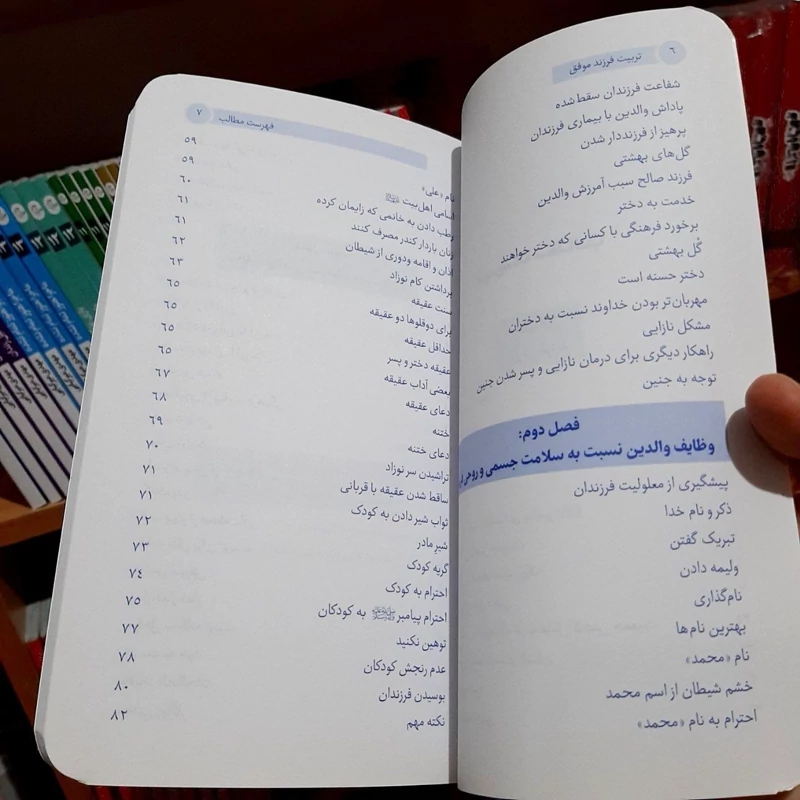 ٦
تربیت فرزند موفق
شفاعت فرزندان سقط‌شده
پاداش والدین با بیماری فرزندان
پرهیز از فرزنددار شدن
گل‌های بهشتی
فرزند صالح سبب آمرزش والدین
خدمت به دختر
برخورد فرهنگی با کسانی که دختر خواهند
گُل بهشتی
دختر حسنه است
مهربان‌تر بودن خداوند نسبت به دختران
مشکل نازایی
راهکار دیگری برای درمان نازایی و پسر شدن جنین
توجه به جنین
فصل دوم:
وظایف والدین نسبت به سلامت جسمی و روحی
پیشگیری از معلولیت فرزندان
ذکر و نام خدا
تبریک گفتن
ولیمه دادن
نام‌گذاری
بهترین نام‌ها
نام «محمد»
خشم شیطان از اسم محمد
احترام به نام «محمد»
فهرست مطالب
۷
نام «علی» ۵۹
اسامی اهل‌بیت ۵۹
رطب دادن به خانمی که زایمان کرده ٦٠
زنان باردار کندر مصرف کنند ٦١
اذان و اقامه ودوری از شیطان ٦١
برداشتن کام نوزاد ٦٢
سنت عقیقه ٦٣
برای دوقلوها دو عقیقه ٦٥
حداقل عقیقه ٦٥
عقیقه دختر و پسر ٦٥
بعضی آداب عقیقه ٦٥
دعای عقیقه ٦٧
ختنه ٦٨
دعای ختنه ٦٩
تراشیدن سر نوزاد ٧٠
ساقط شدن عقیقه با قربانی ٧١
ثواب شیر دادن به کودک ٧١
شیر مادر ٧٢
گریه کودک ٧٣
احترام به کودک ٧٤
احترام پیامبرﷺ به کودکان ٧٥
توهین نکنید ٧٧
عدم رنجش کودکان ٧٨
بوسیدن فرزندان ٨٠
نکته مهم ٨٢